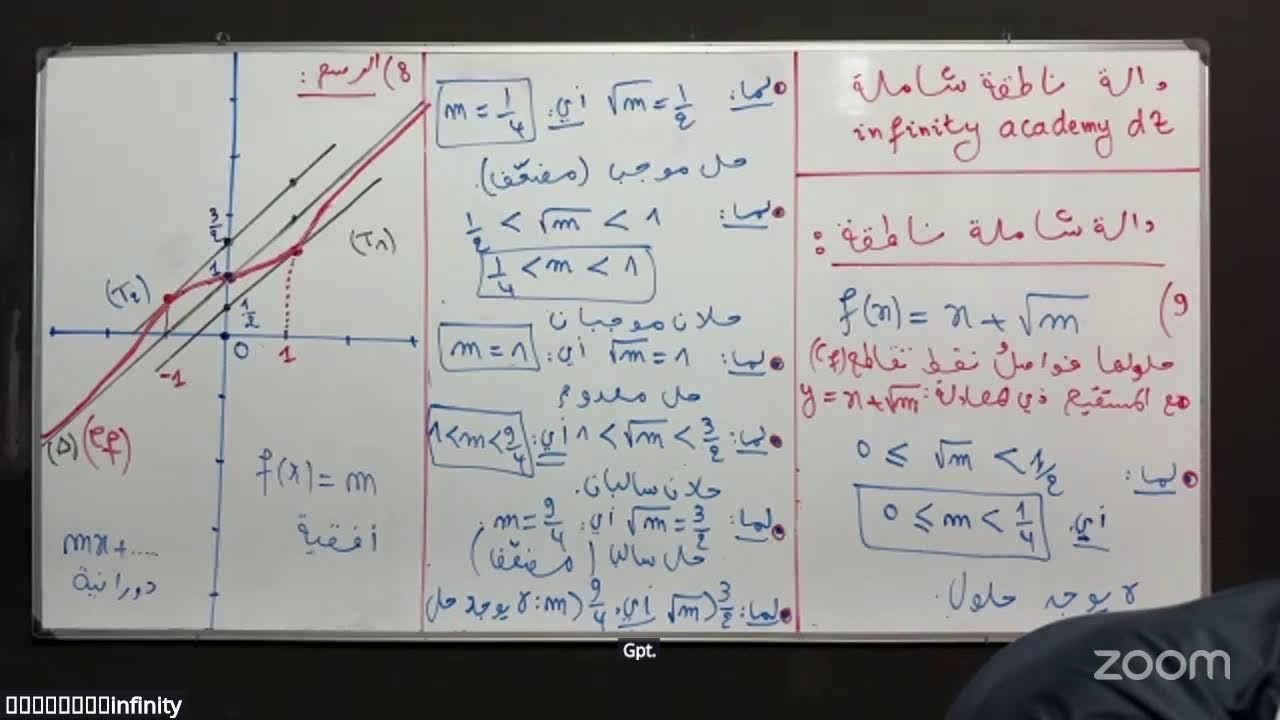 دالة ناطقة شاملة
infinity academy dz
دالة شاملة ناطقة :
9) f(x) = x + √m
حلولها فواصل نقط تقاطع (Cf)
مع المستقيم ذي المعادلة: y = x + √m
لما: 0 ≤ √m < 1/2
أي: 0 ≤ m < 1/4
لا يوجد حلول.
لما: √m = 1/2 أي: m = 1/4
حل موجب (مضعّف).
لما: 1/2 < √m < 1
1/4 < m < 1
حلان موجبان
لما: √m = 1 أي: m = 1
حل معدوم
لما: 1 < √m < 3/2 أي: 1 < m < 9/4
حلان سالبان.
لما: √m = 3/2 أي: m = 9/4.
حل سالب (مضعّف)
لما: √m > 3/2 أي: m > 9/4: لا يوجد حل
8) الرسم :
3/2
1
(T1)
(T2)
1/2
0
1
-1
(Δ) (Cf)
f(x) = m
أفقية
mx + ....
دورانية
Gpt.
zoom
infinity